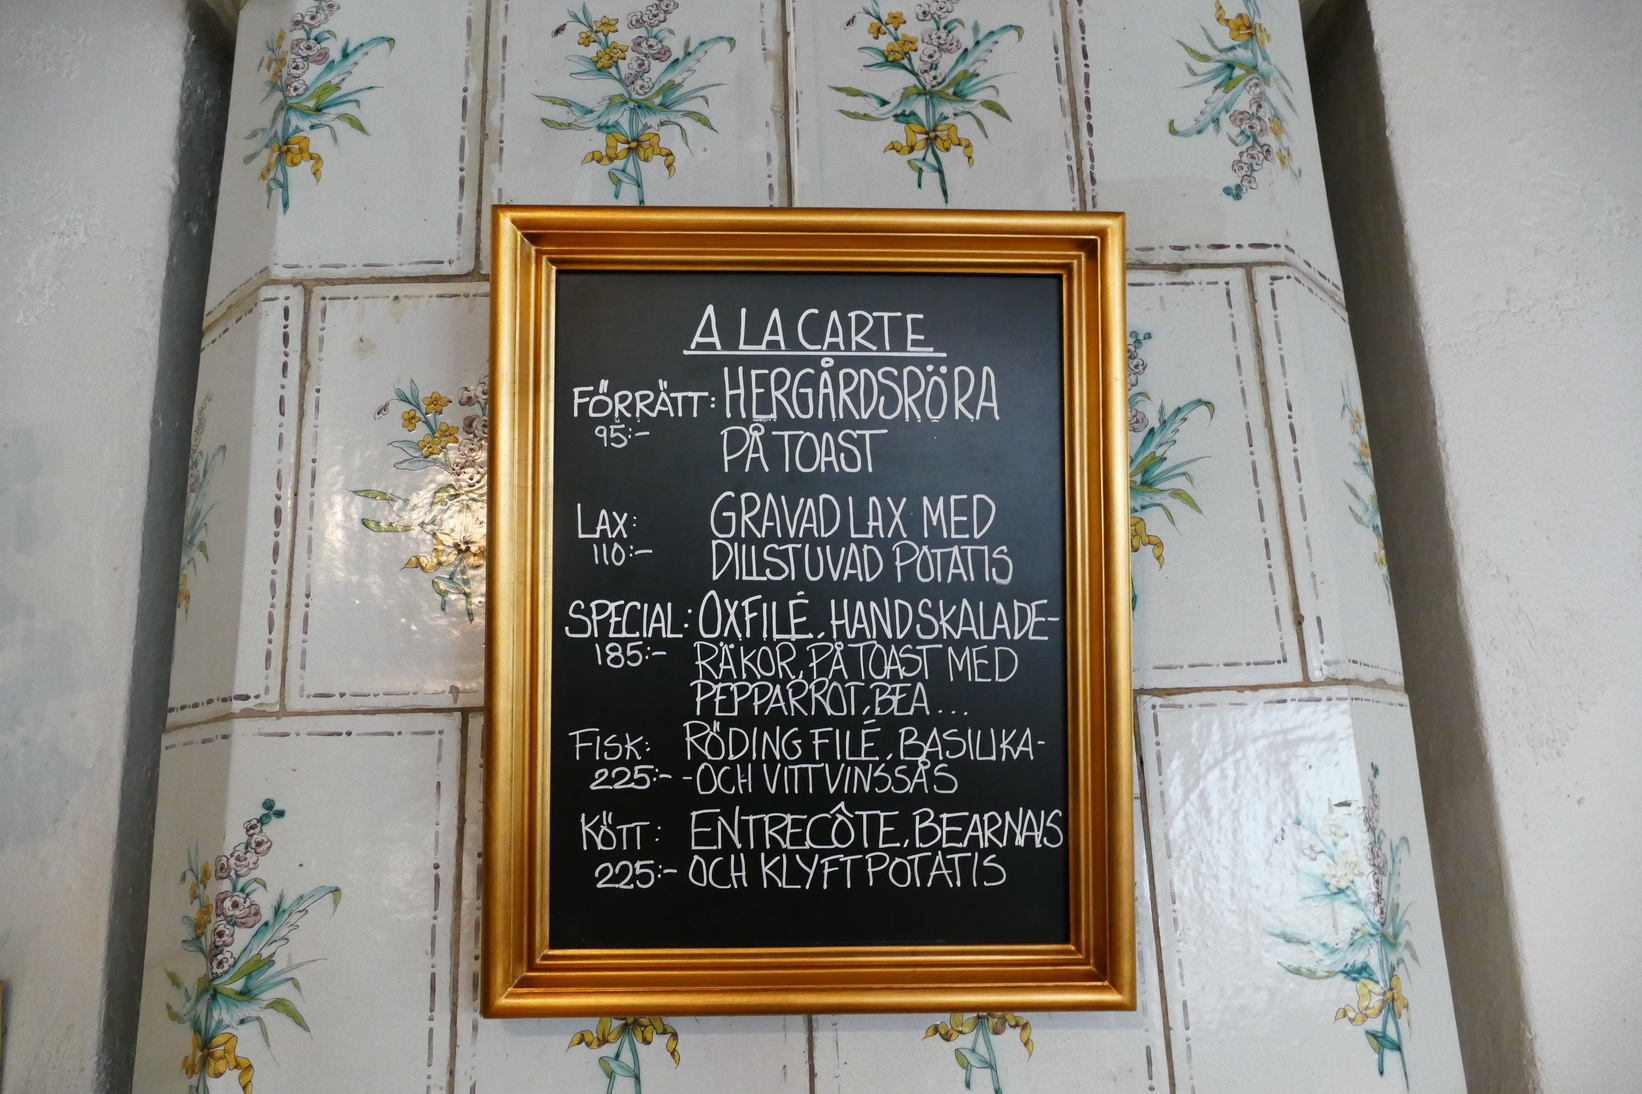 A LA CARTE
FÖRRÄTT: HERGÅRDSRÖRA
95:- PÅ TOAST
LAX: GRAVAD LAX MED
110:- DILLSTUVAD POTATIS
SPECIAL: OXFILÉ, HANDSKALADE-
185:- RÄKOR, PÅ TOAST MED
PEPPARROT, BEA...
FISK: RÖDING FILÉ, BASILIKA-
225:- -OCH VITTVINSSÅS
KÖTT: ENTRECÔTE, BEARNAIS
225:- OCH KLYFTPOTATIS